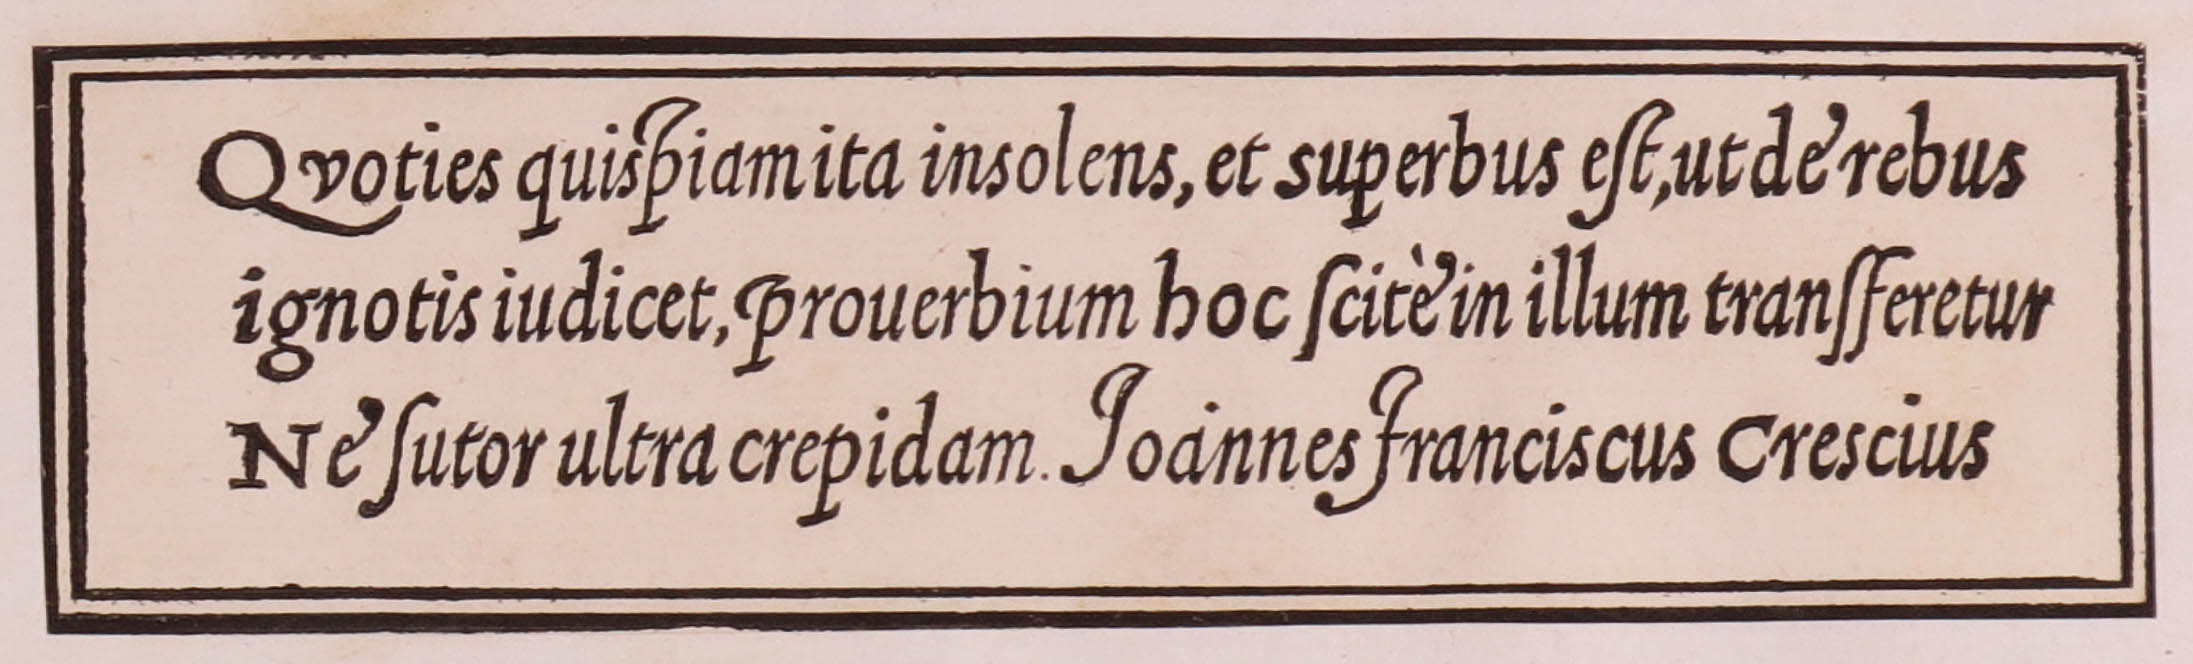 Qvoties quispiam ita insolens, et superbus eſt, ut de rebus
ignotis iudicet, prouerbium hoc ſcitè in illum tranſferetur
Ne ſutor ultra crepidam. Joannes Franciscus Crescius